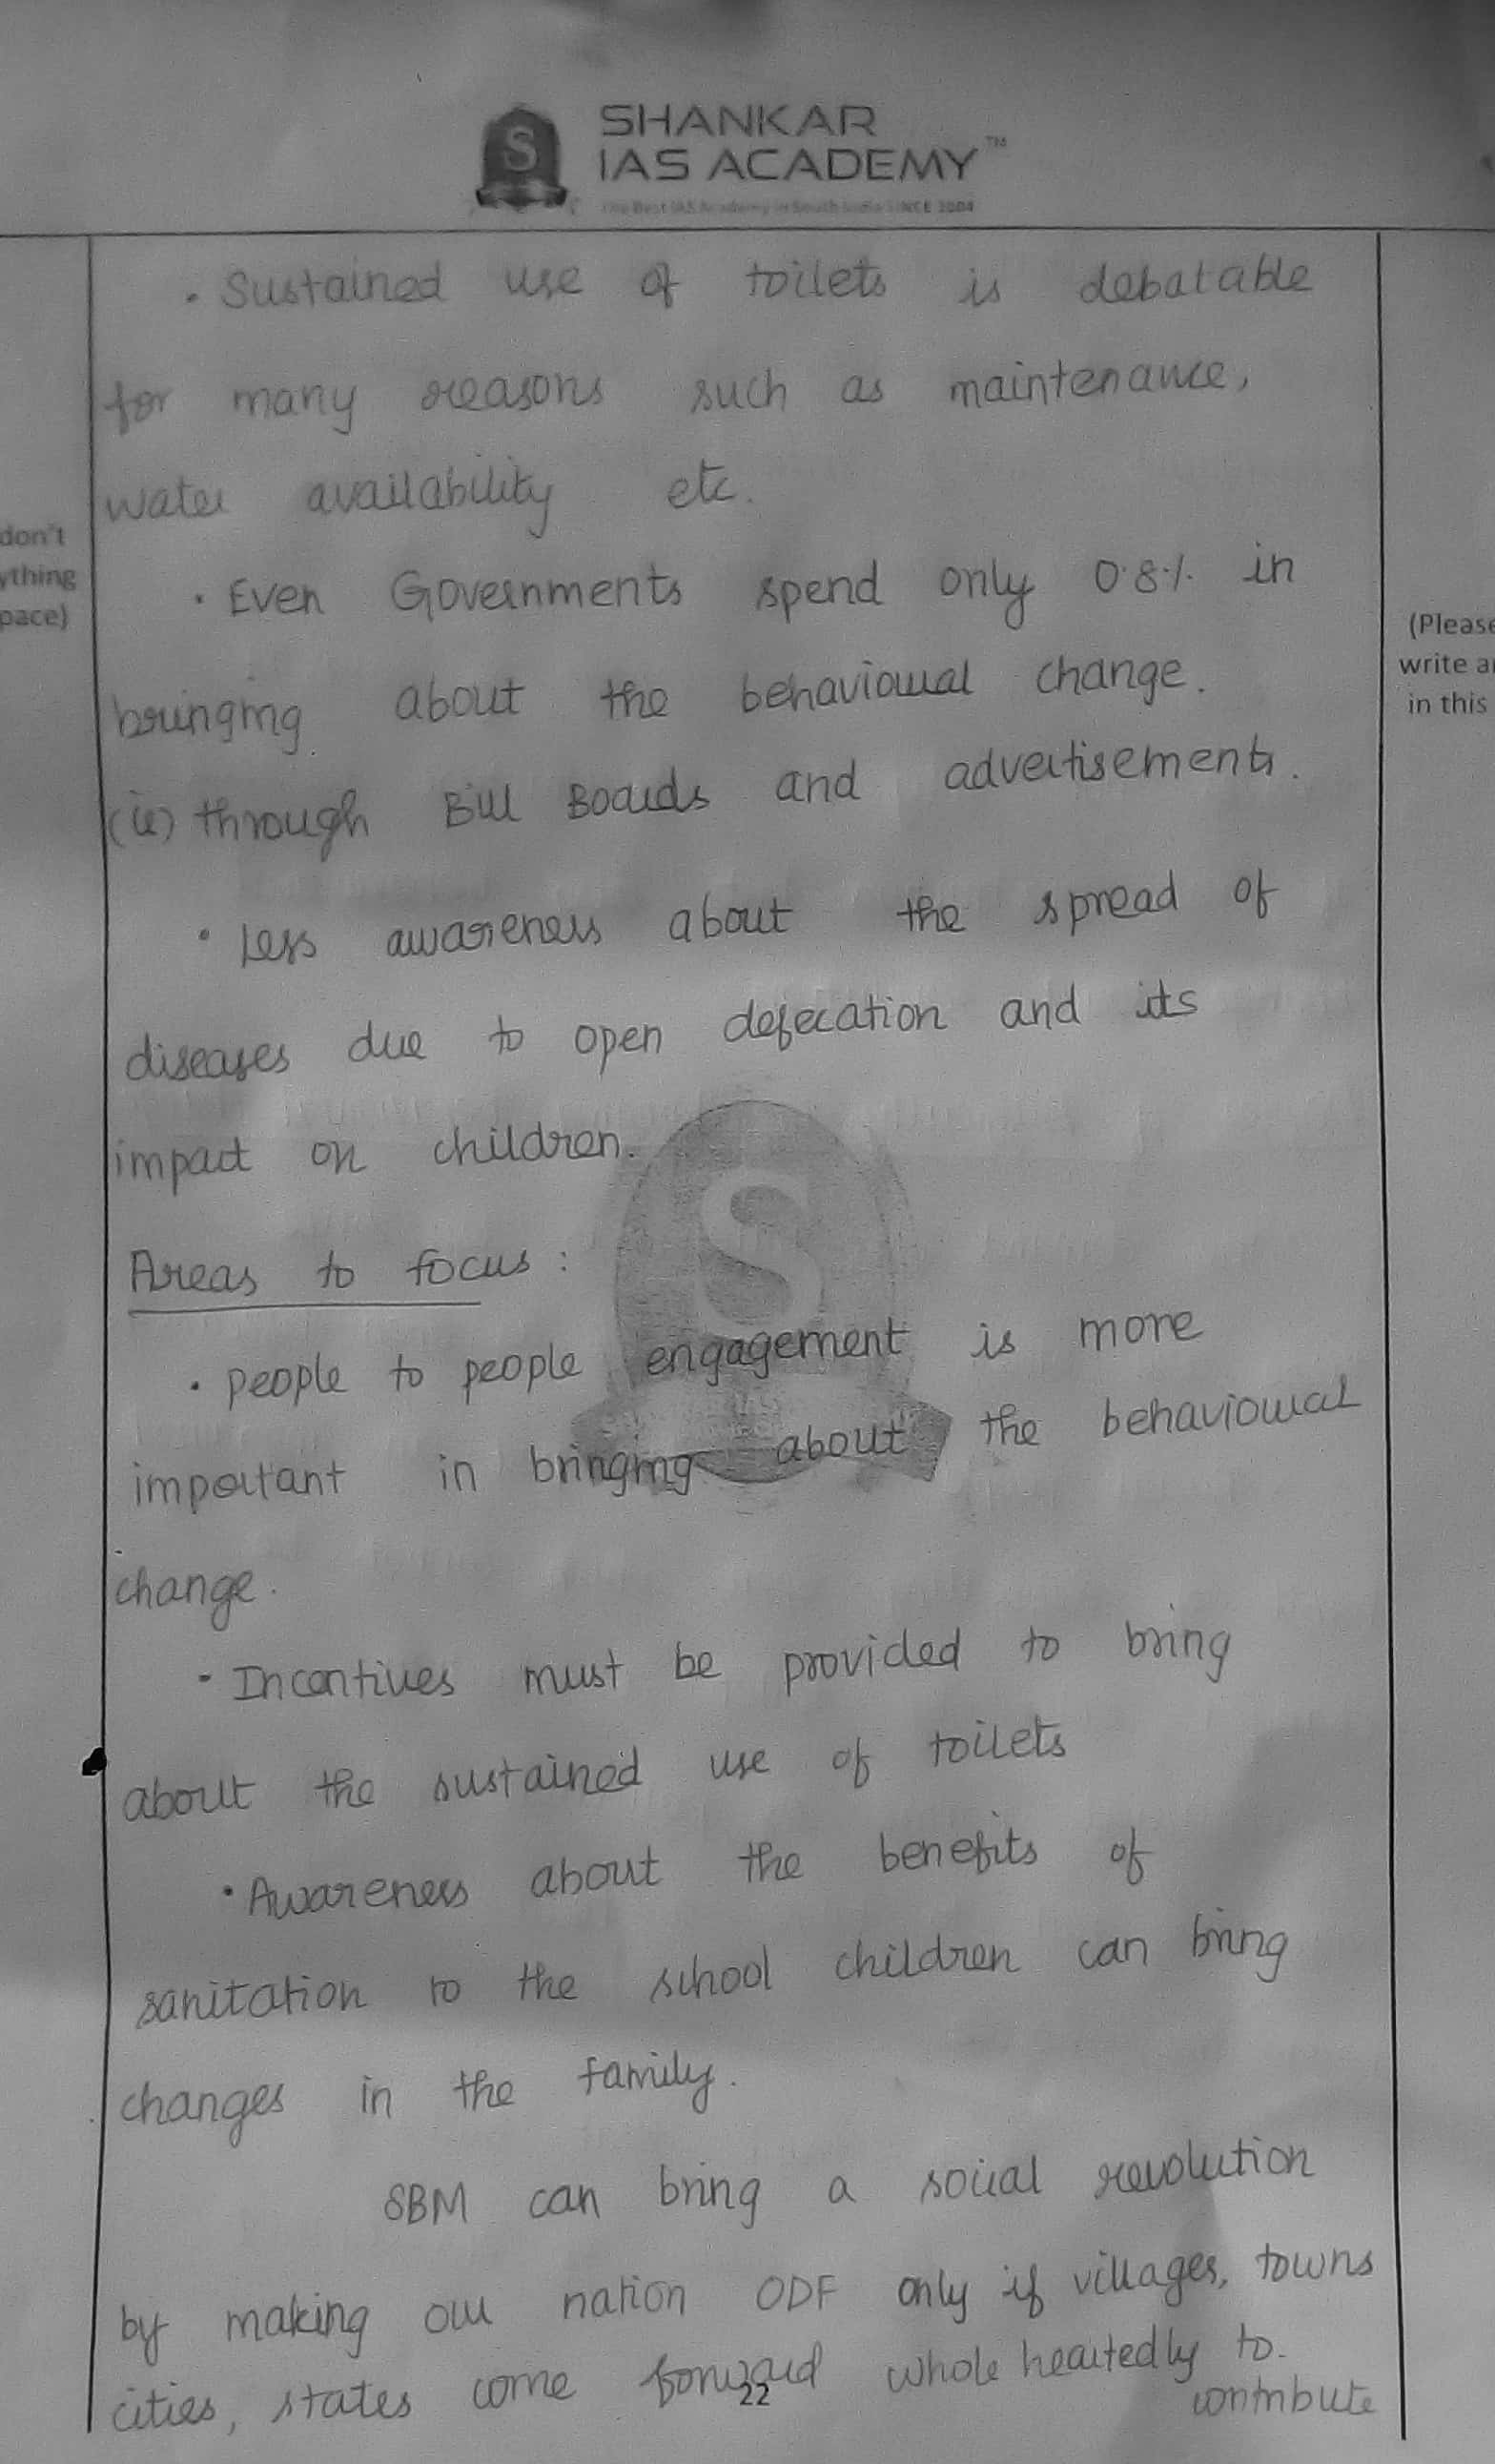 SHANKAR
IAS ACADEMY™
The Best IAS Academy in South India SINCE 2004
• Sustained use of toilets is debatable
for many reasons such as maintenance,
water availability etc.
don't
ything
pace)
• Even Governments spend only 0.8% in
(Please
write a
in this
bringing about the behavioural change.
(ie) through Bill Boards and advertisements.
• Less awareness about the spread of
diseases due to open defecation and its
impact on children.
S
Areas to focus :
• people to people engagement is more
important in bringing about the behavioural
change.
• Incentives must be provided to bring
about the sustained use of toilets
• Awareness about the benefits of
sanitation to the school children can bring
changes in the family.
SBM can bring a social revolution
by making our nation ODF only if villages, towns
cities, states come forward whole heartedly to
contribute
22